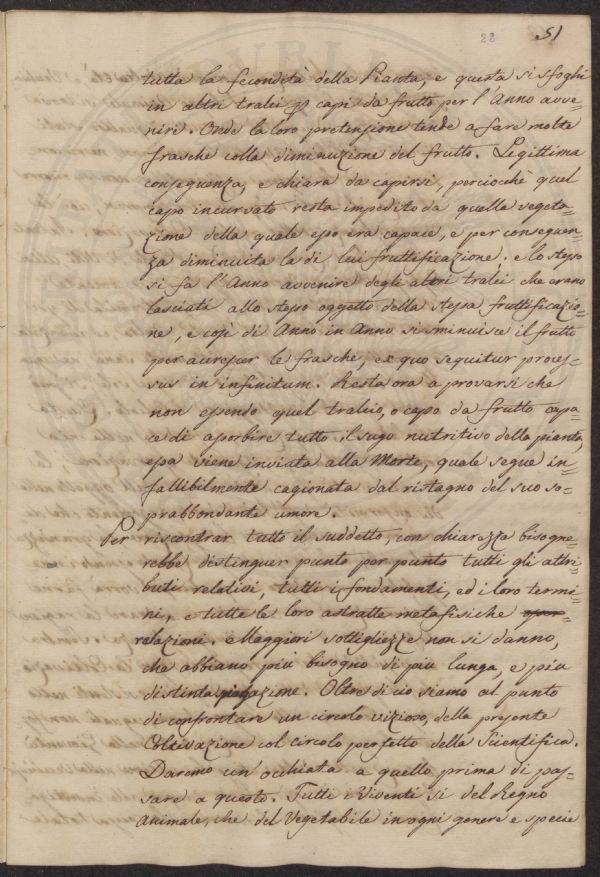 28 51
tutta la fecondità della Pianta, e questa si sfoghi
in altri tralci, o capi da frutto per l'Anno avve=
nire. Onde la loro pretensione tende a fare molte
frasche colla diminuzione del frutto. Legittima
conseguenza, e chiara da capirsi, perciocchè quel
capo incurvato resta impedito da quella vegeta=
zione della quale esso era capace, e per conseguen=
za diminuita la di lui fruttificazione. e lo stesso
si fa l'Anno avvenire degli altri tralci che erano
lasciati allo stesso oggetto della stessa fruttificazio=
ne, e così di Anno in Anno si sminuisce il frutto
per accrescer le frasche, ex quo sequitur proces=
sus in infinitum. Resta ora a provarsi che
non essendo quel tralcio, o capo da frutto capa=
ce di assorbire tutto il sugo nutritivo della pianta,
essa viene inviata alla Morte, quale segue in=
fallibilmente cagionata dal ristagno del suo so=
prabbondante umore.
Per riscontrar tutto il suddetto, con chiarezza bisogne=
rebbe distinguer punto por punto tutti gli attri=
buti relativi, tutti i fondamenti, ed i loro termi=
ni, e tutte le loro astratte metafisiche
relazioni. Maggiori sottigliezze non si danno,
che abbiano più bisogno di più lunga, e più
distinta piegazione. Oltre di ciò siamo al punto
di confrontare un circolo vizioso, della presente
Coltivazione col circolo perfetto della Scientifica.
Daremo un'occhiata a quello prima di pas=
sare a questo. Tutti i Viventi si del Regno
Animale, che del Vegetabile in ogni genere e specie